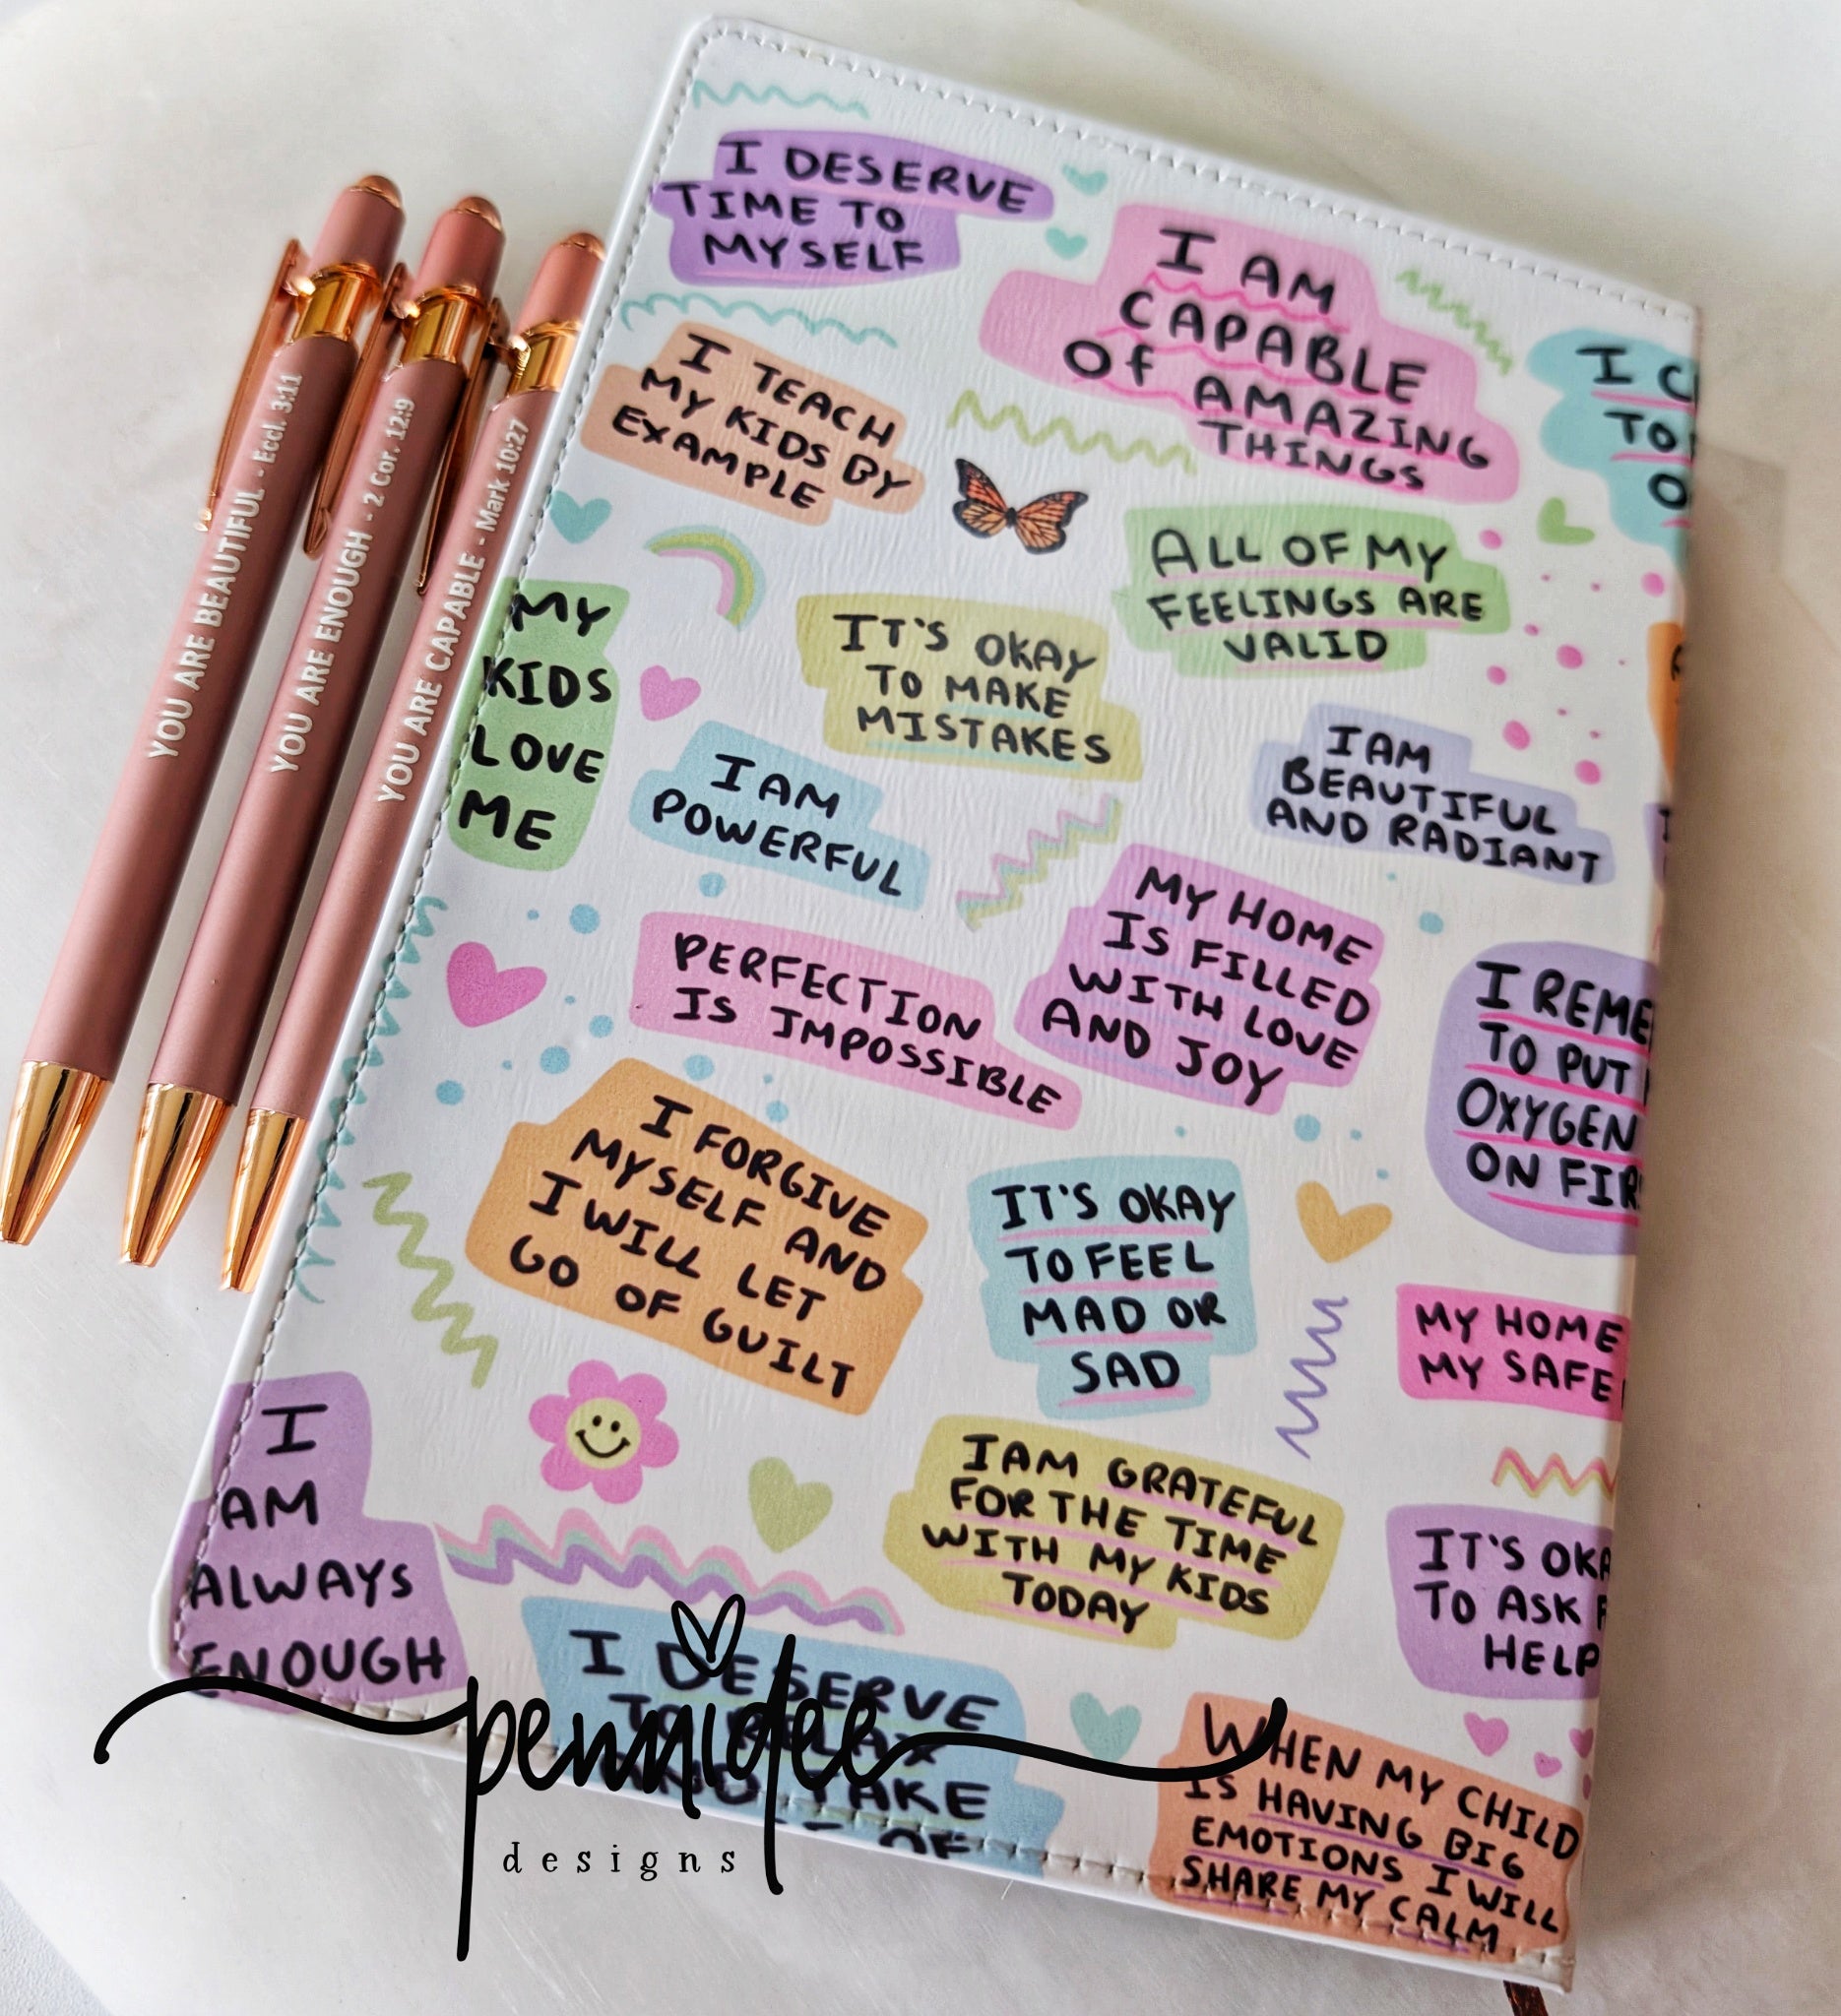 YOU ARE BEAUTIFUL - Eccl. 3:11
YOU ARE ENOUGH - 2 Cor. 12:9
YOU ARE CAPABLE - Mark 10:27
I DESERVE
TIME TO
MYSELF
I AM
CAPABLE
Of AMAZING
THINGS
I
TO
I TEACH
MY KIDS BY
EXAMPLE
ALL OF MY
FEELINGS ARE
VALID
MY
KIDS
LOVE
ME
IT'S OKAY
TO MAKE
MISTAKES
I AM
POWERFUL
I AM
BEAUTIFUL
AND RADIANT
MY HOME
IS FILLED
WITH LOVE
AND JOY
PERFECTION
IS IMPOSSIBLE
I REME
TO PUT
OXYGEN
ON FIR
I FORGIVE
MYSELF AND
I WILL LET
GO OF GUILT
IT'S OKAY
TO FEEL
MAD OR
SAD
MY HOME
MY SAFE
I
AM
ALWAYS
ENOUGH
I AM GRATEFUL
FOR THE TIME
WITH MY KIDS
TODAY
IT'S OKA
TO ASK F
HELP
I DESERVE
TO RELAX
AND TAKE
OF
WHEN MY CHILD
IS HAVING BIG
EMOTIONS I WILL
SHARE MY CALM
pennidee
designs